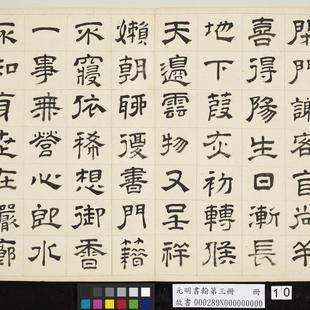 閉門謝客自尚羊
喜得陽生日漸長
地下葭灰初轉候
天邊雲物又呈祥
嬾朝聊復書門籍
不寢依稀想御香
一事無營心即水
不知身世在巖廊
元明書翰第三冊 冊
故書 000289N000000000
10